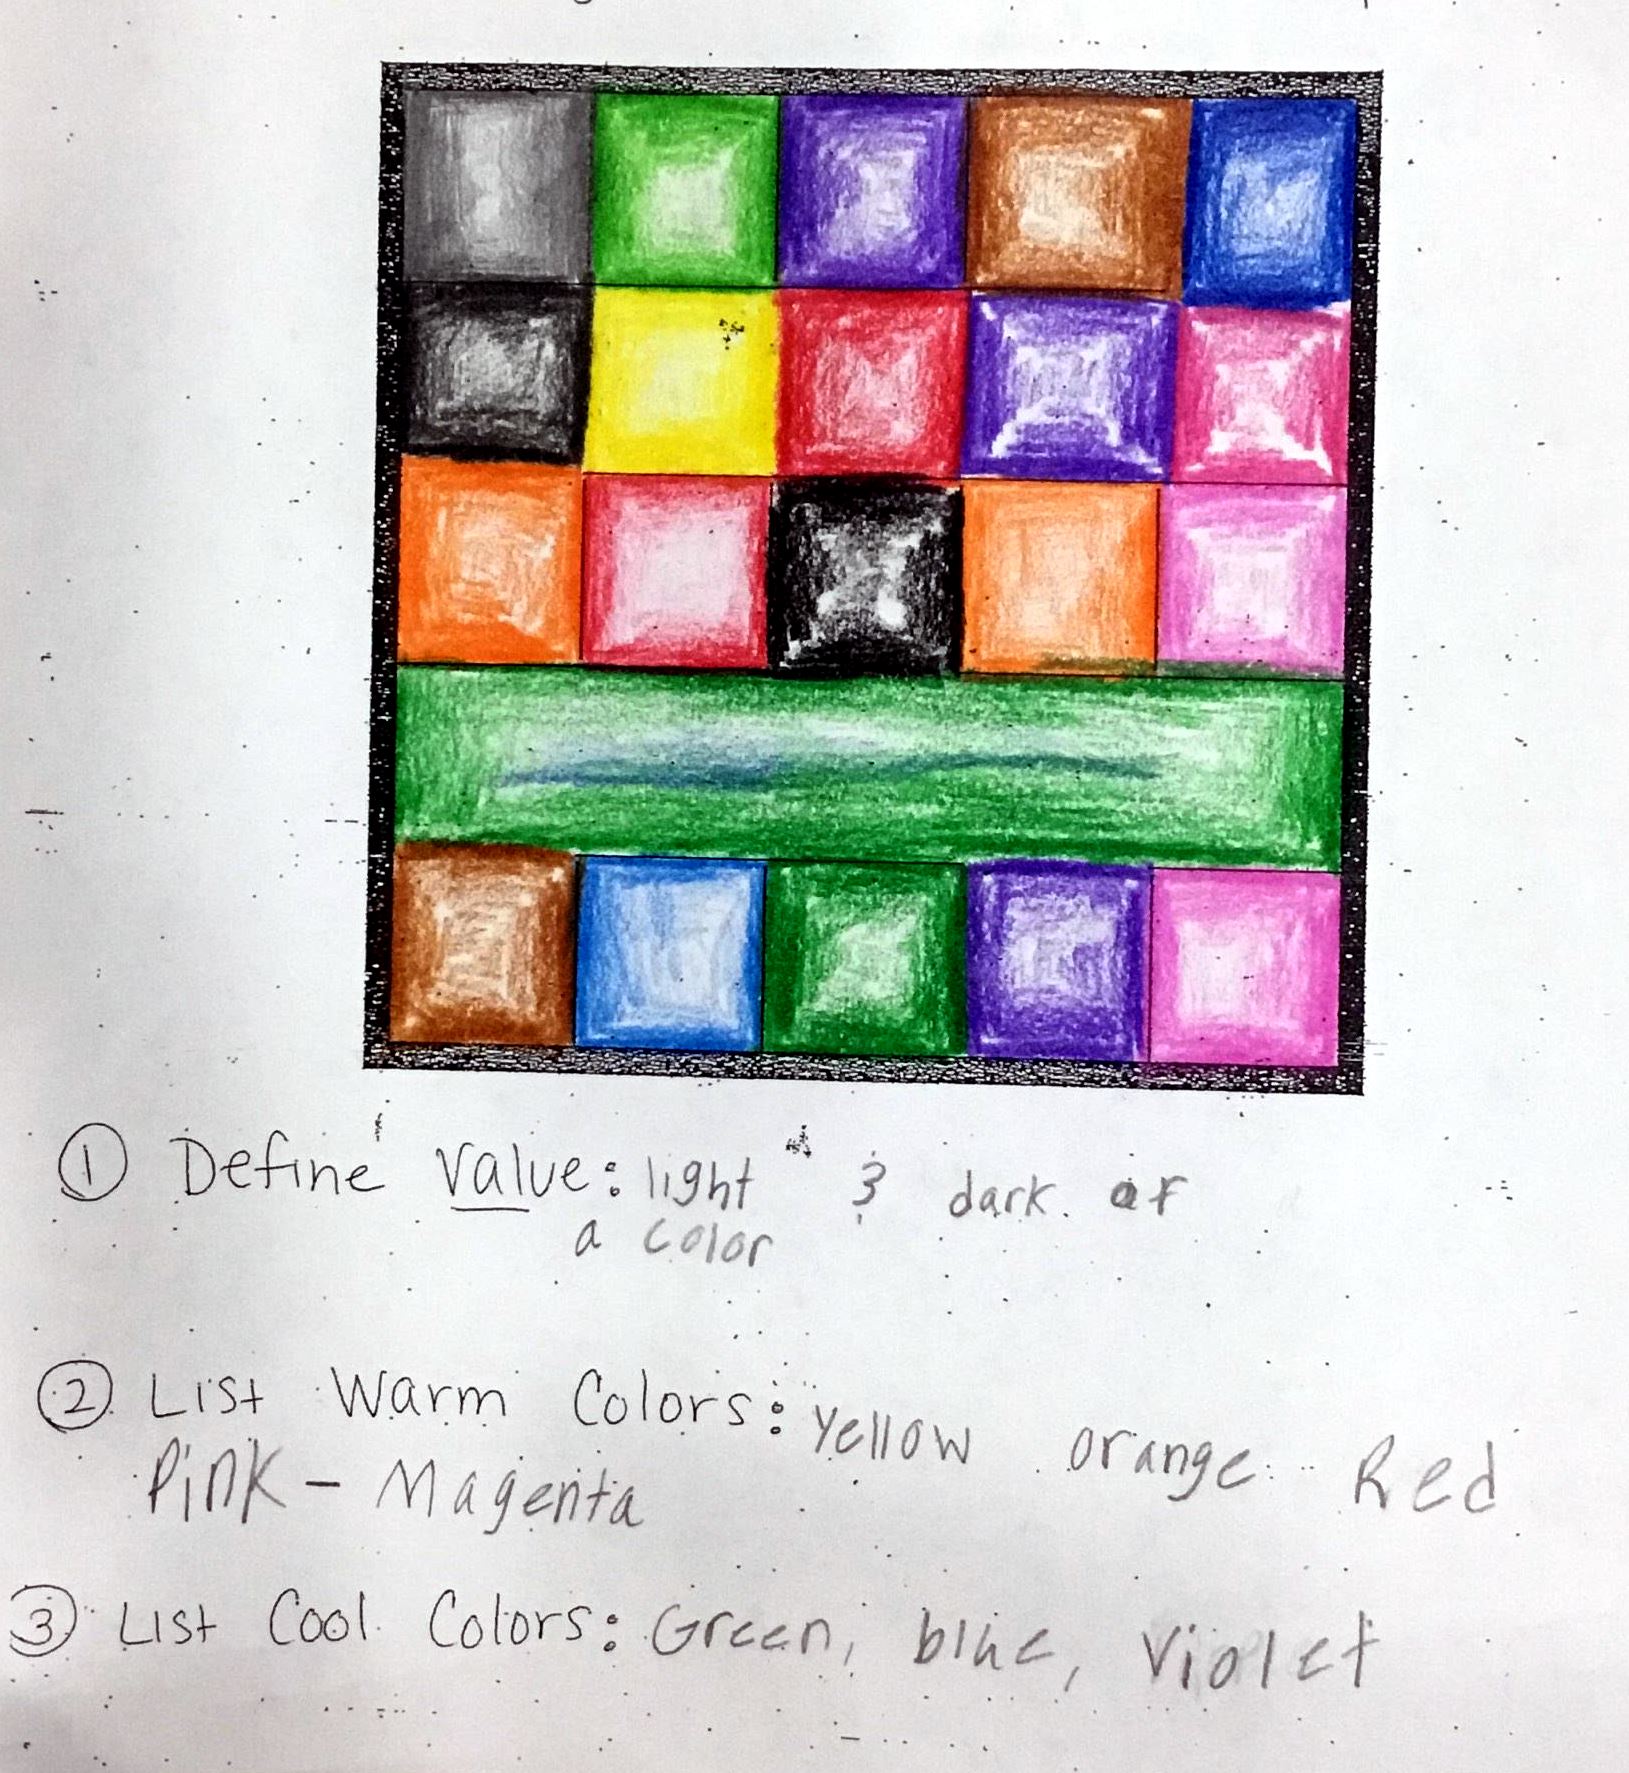 ① Define Value: light & dark of
a color
② List Warm Colors: Yellow orange Red
Pink - Magenta
③ List Cool Colors: Green, blue, Violet